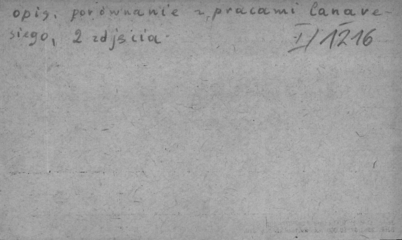 opis, porównanie z pracami Canave-
siego, 2 zdjęcia.
I/1216